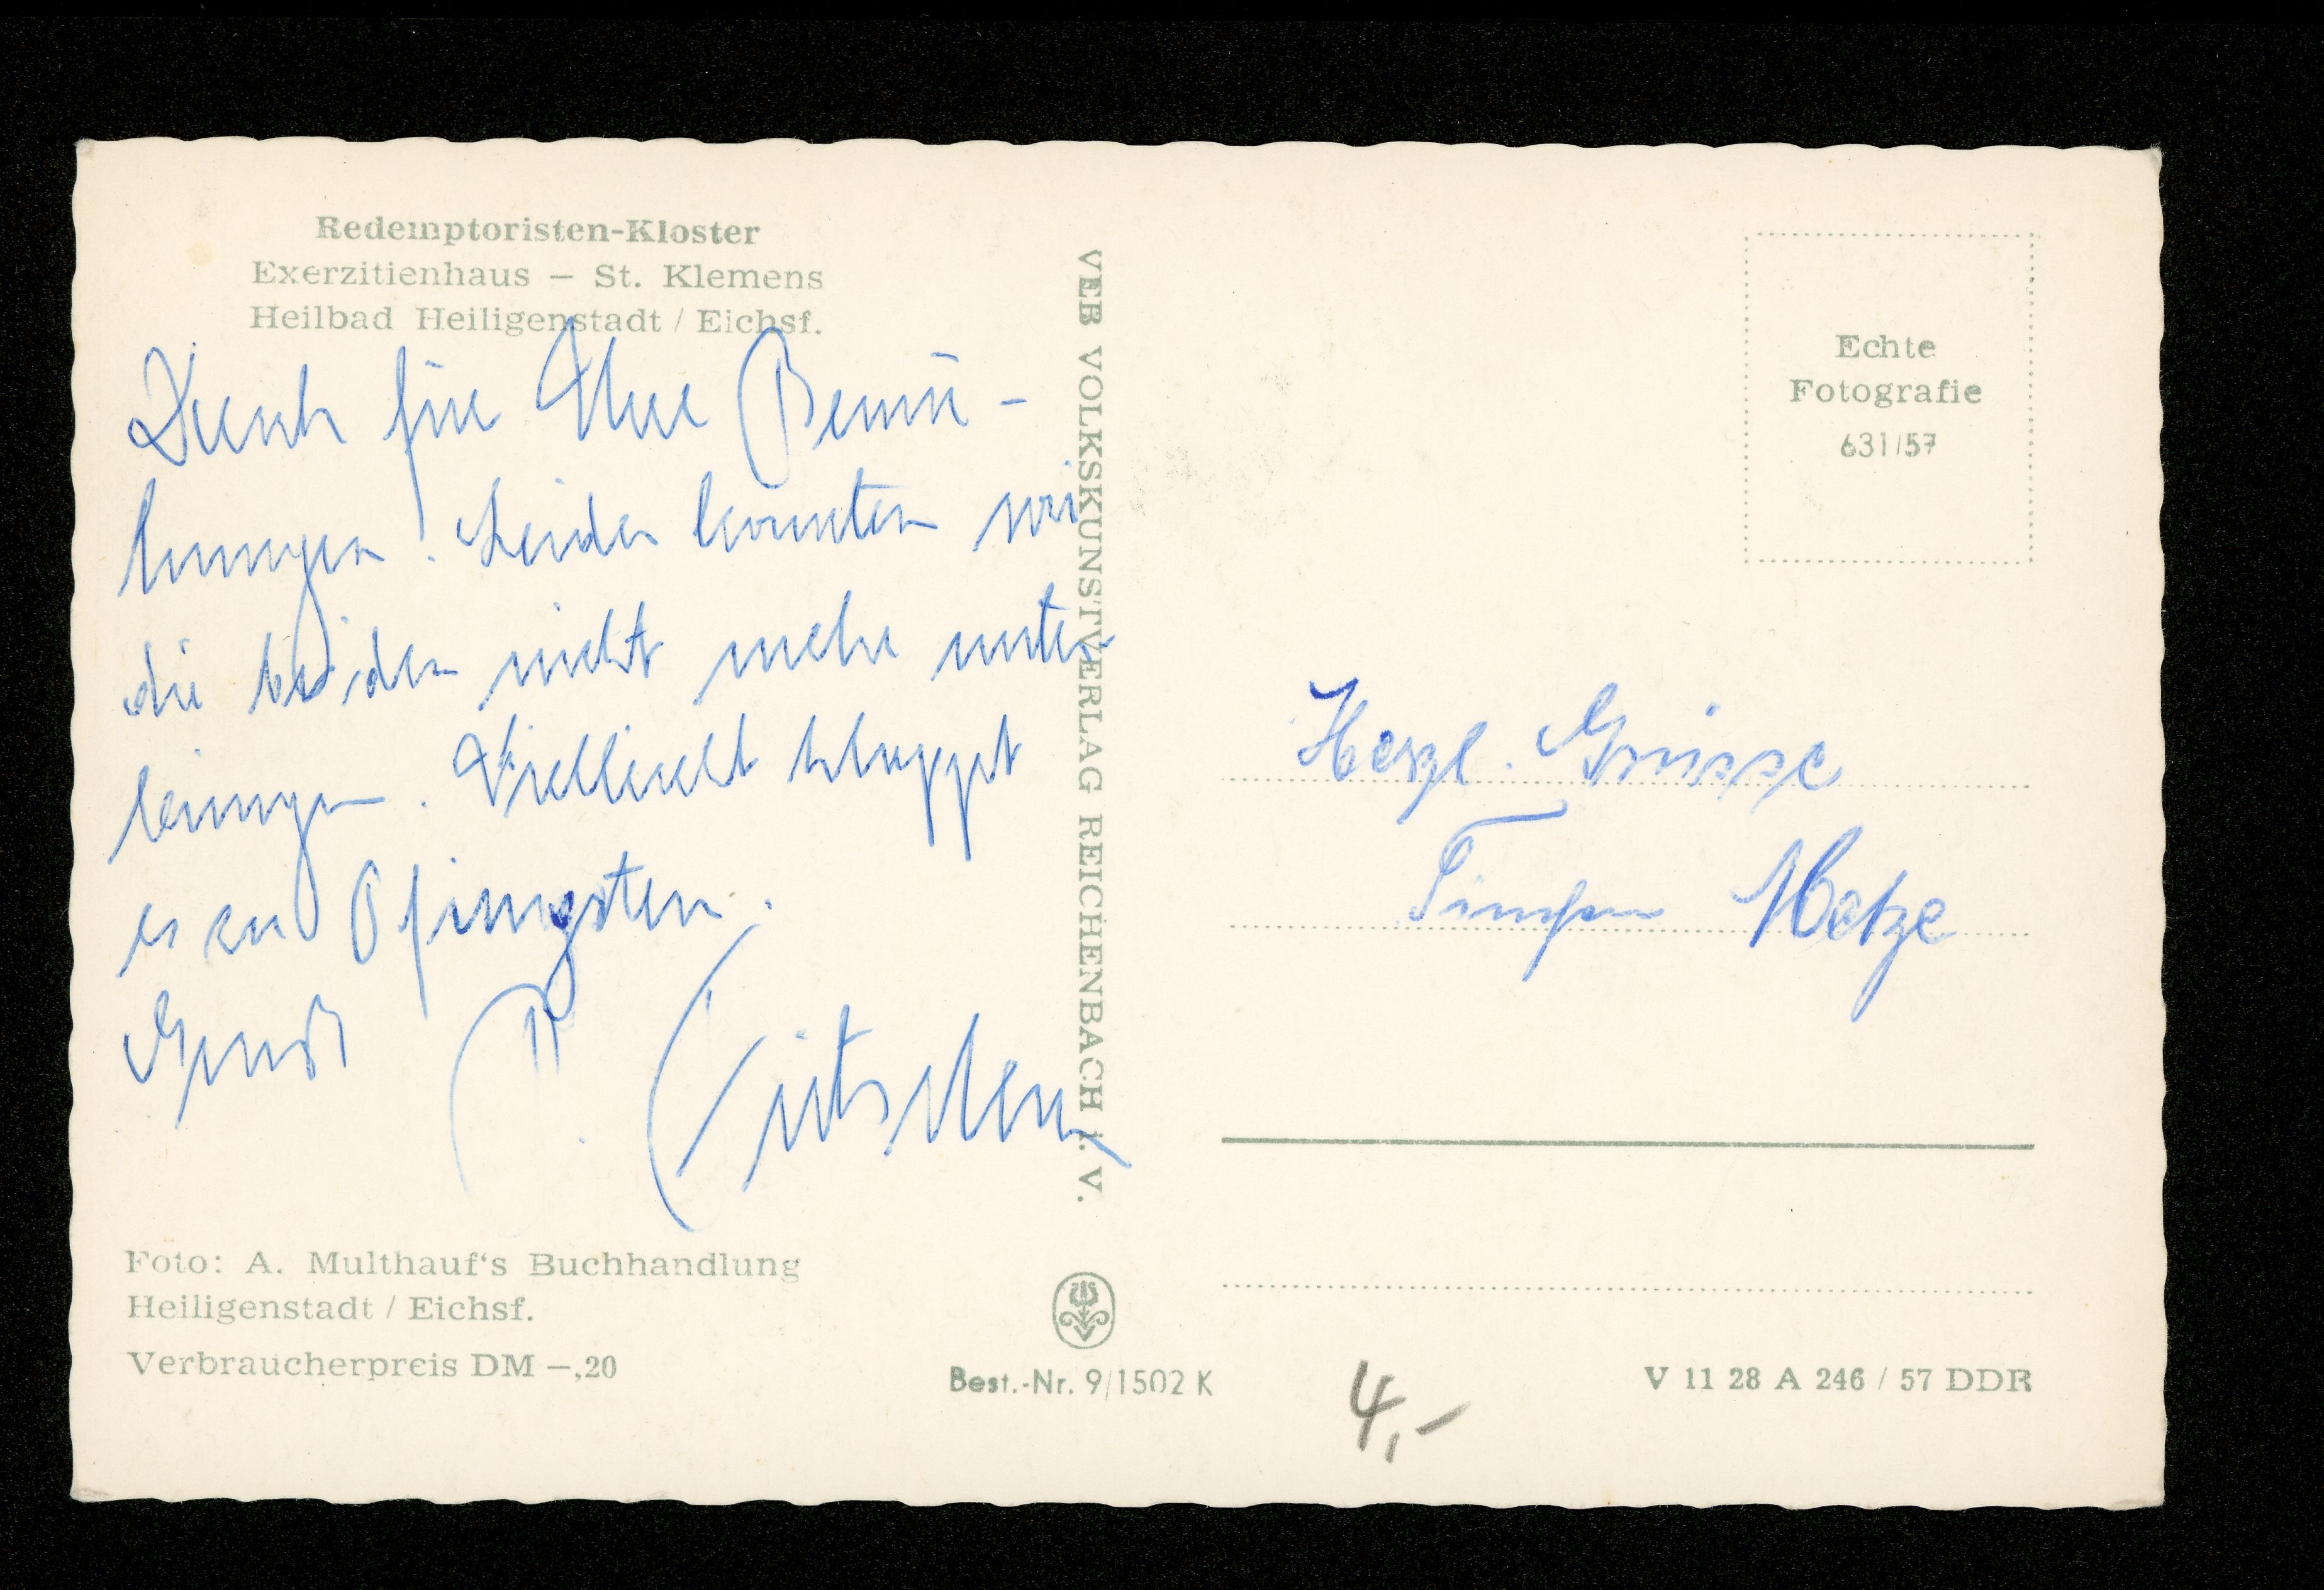 Redemptoristen-Kloster
Exerzitienhaus – St. Klemens
Heilbad Heiligenstadt / Eichsf.
Dank für Ihre Bemü-
hungen! Leider konnten wir
die beiden nicht mehr unter
bringen. Vielleicht klappt
es zu Pfingsten.
Gruß P.
Foto: A. Multhauf's Buchhandlung
Heiligenstadt / Eichsf.
Verbraucherpreis DM –,20
VEB VOLKSKUNSTVERLAG REICHENBACH i. V.
Best.-Nr. 9/1502 K
Echte
Fotografie
631/57
Herzl. Grüsse
4,-
V 11 28 A 246 / 57 DDR